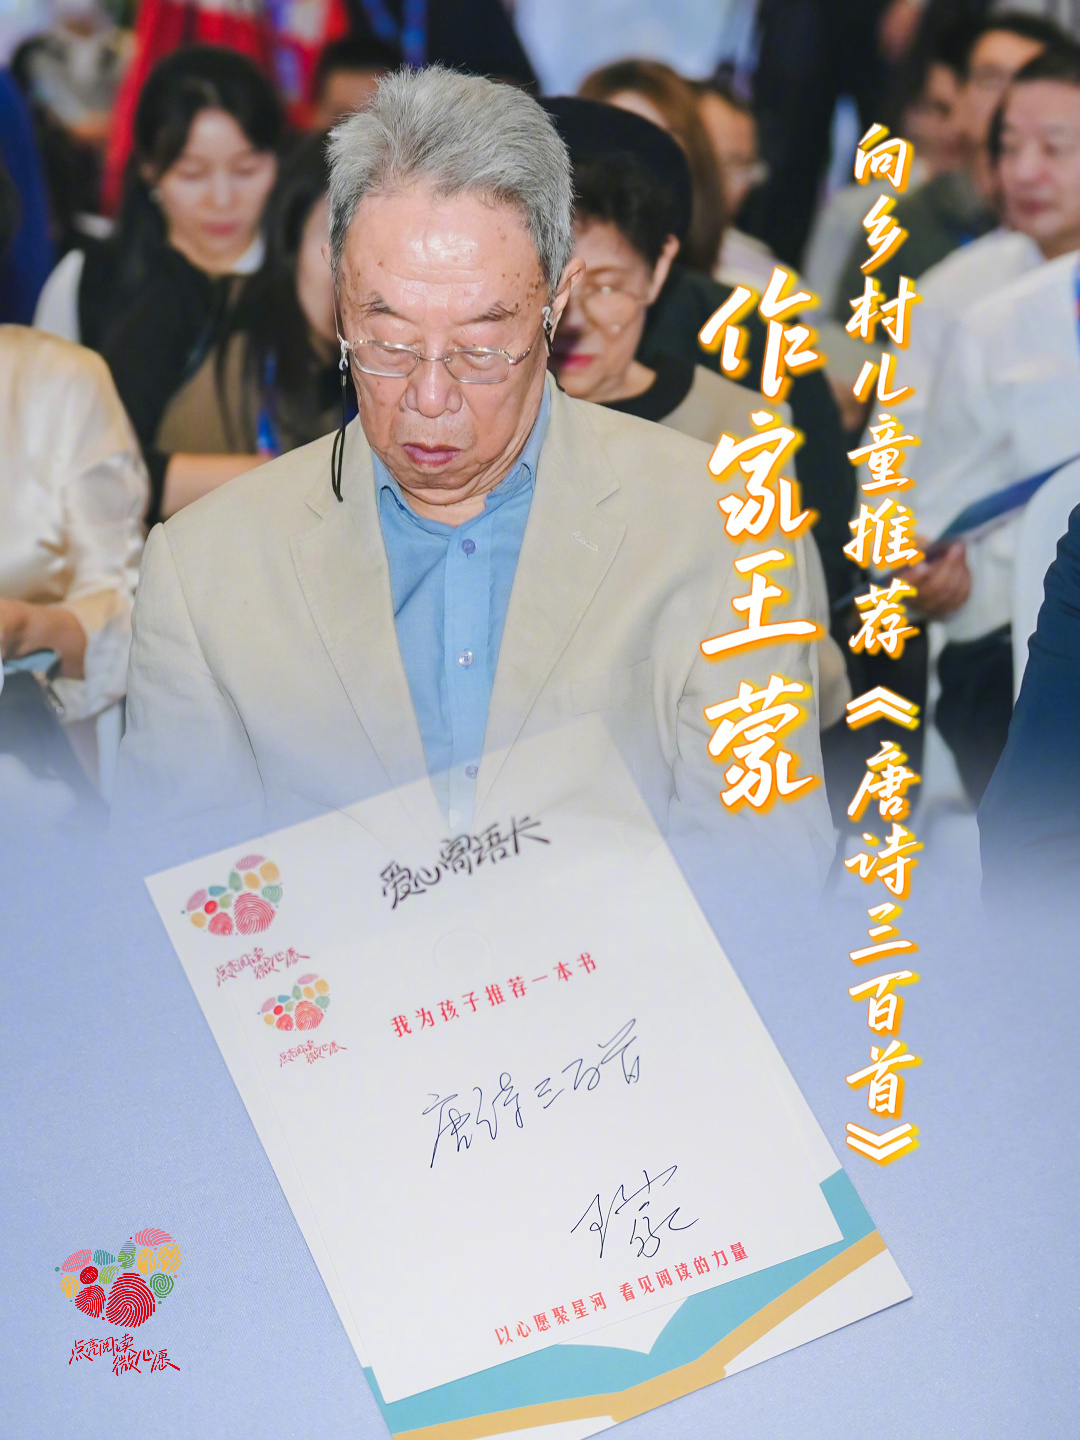 向乡村儿童推荐《唐诗三百首》
作家王蒙
爱心寄语卡
点亮阅读
微心愿
点亮阅读
微心愿
我为孩子推荐一本书
唐诗三百首
王蒙
以心愿聚星河 看见阅读的力量
点亮阅读
微心愿